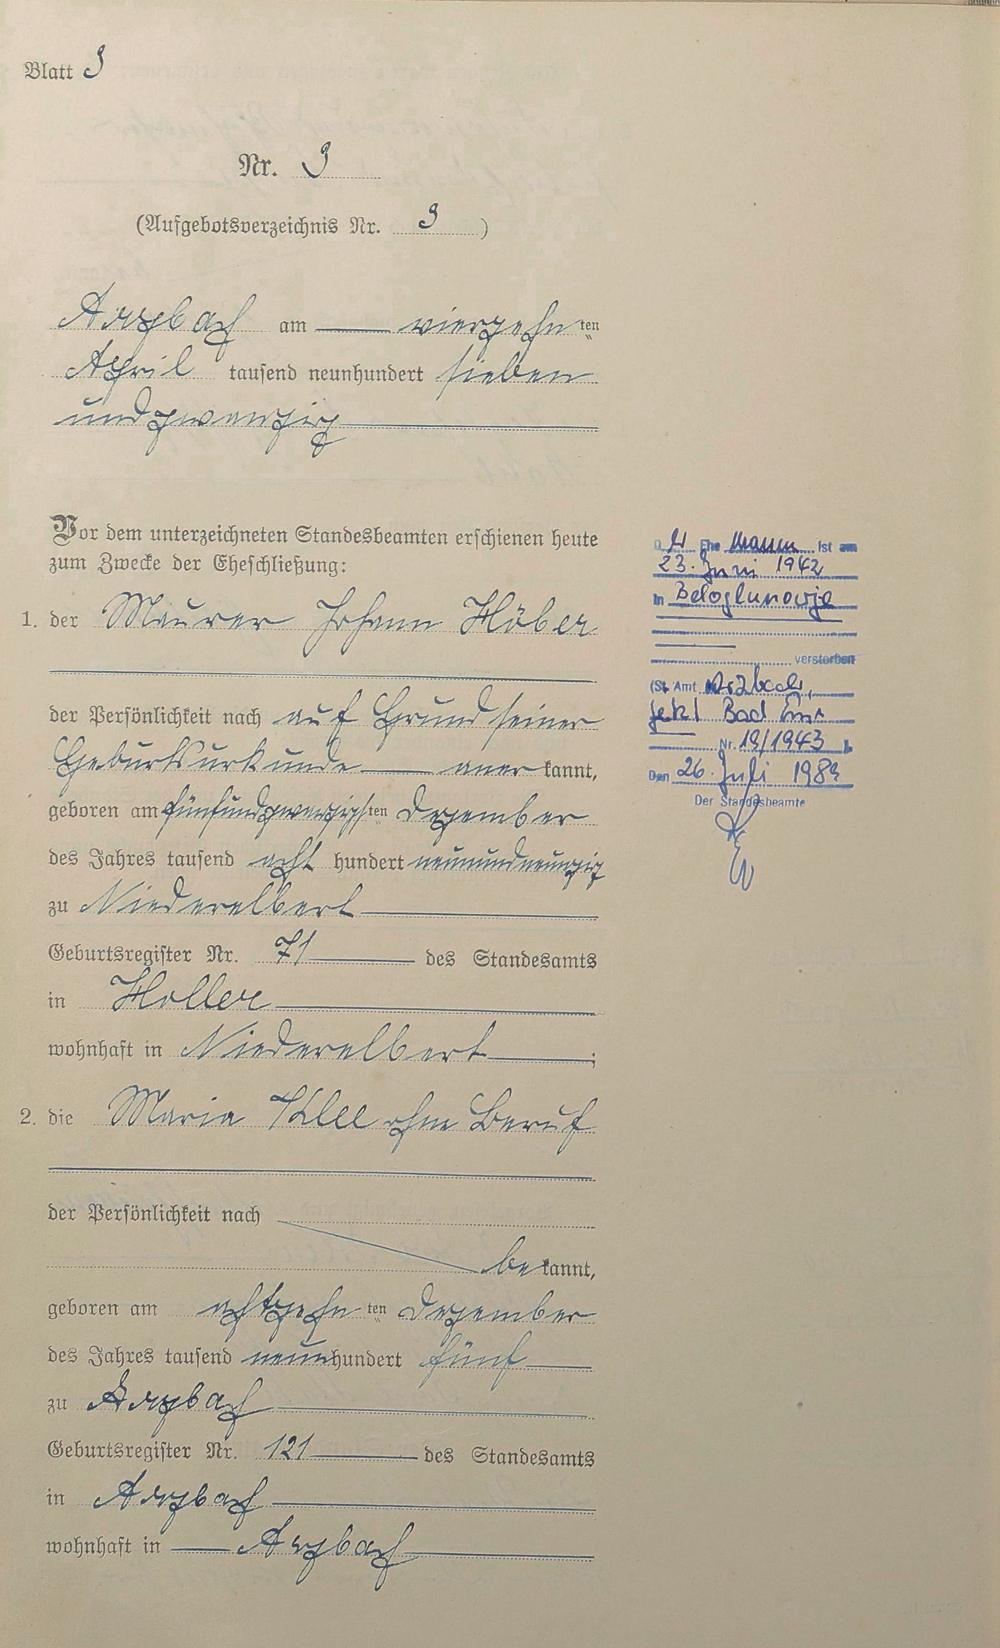 Blatt 9
Nr. 9
(Aufgebotsverzeichnis Nr. 9 )
Arzbach am vierzehnten
April tausend neunhundert sieben
undzwanzig
Vor dem unterzeichneten Standesbeamten erschienen heute
zum Zwecke der Eheschließung:
1. der Maurer Johann Höber
der Persönlichkeit nach auf Grund seiner
Geburtsurkunde anerkannt,
geboren am fünfundzwanzigsten Dezember
des Jahres tausend acht hundert neunundneunzig
zu Niederelbert
Geburtsregister Nr. 71 des Standesamts
in Holler
wohnhaft in Niederelbert ;
2. die Maria Klee ohne Beruf
der Persönlichkeit nach
bekannt,
geboren am achtzehnten Dezember
des Jahres tausend neunhundert fünf
zu Arzbach
Geburtsregister Nr. 121 des Standesamts
in Arzbach
wohnhaft in Arzbach
Ehemann ist am
23. Juni 1942
in Beloglunowje
verstorben
(St. Amt Arzbach,
jetzt Bad Ems
Nr. 19/1943
Den 26. Juli 1989
Der Standesbeamte